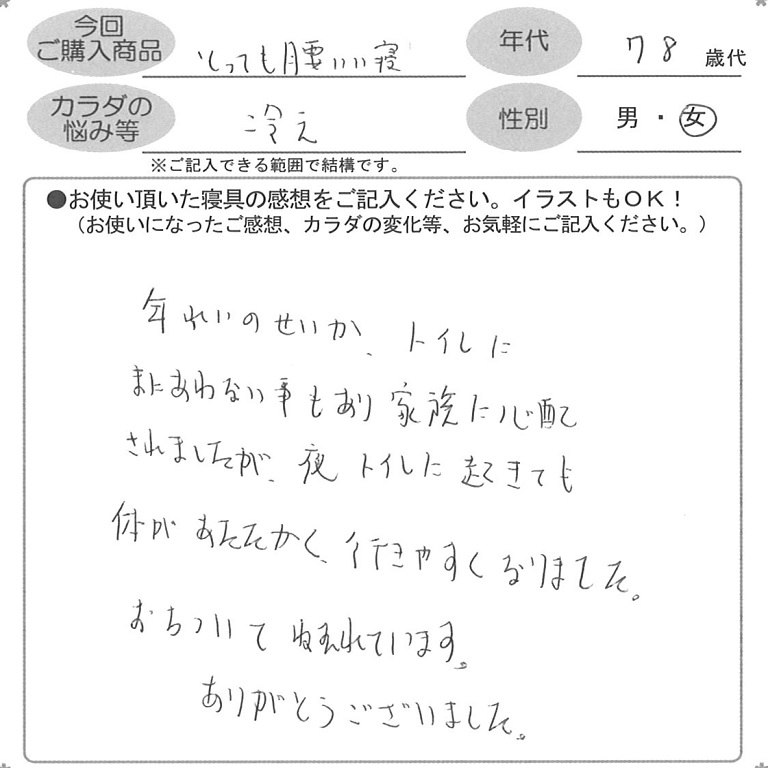 今回
ご購入商品
とっても腰いい寝
年代
78 歳代
カラダの
悩み等
冷え
性別
男・女
※ご記入できる範囲で結構です。
●お使い頂いた寝具の感想をご記入ください。イラストもOK!
(お使いになったご感想、カラダの変化等、お気軽にご記入ください。)
年れいのせいか、トイレに
まにあわない事もあり家族に心配
されましたが、夜トイレに起きても
体があたたかく、行きやすくなりました。
おちついてねむれています。
ありがとうございました。